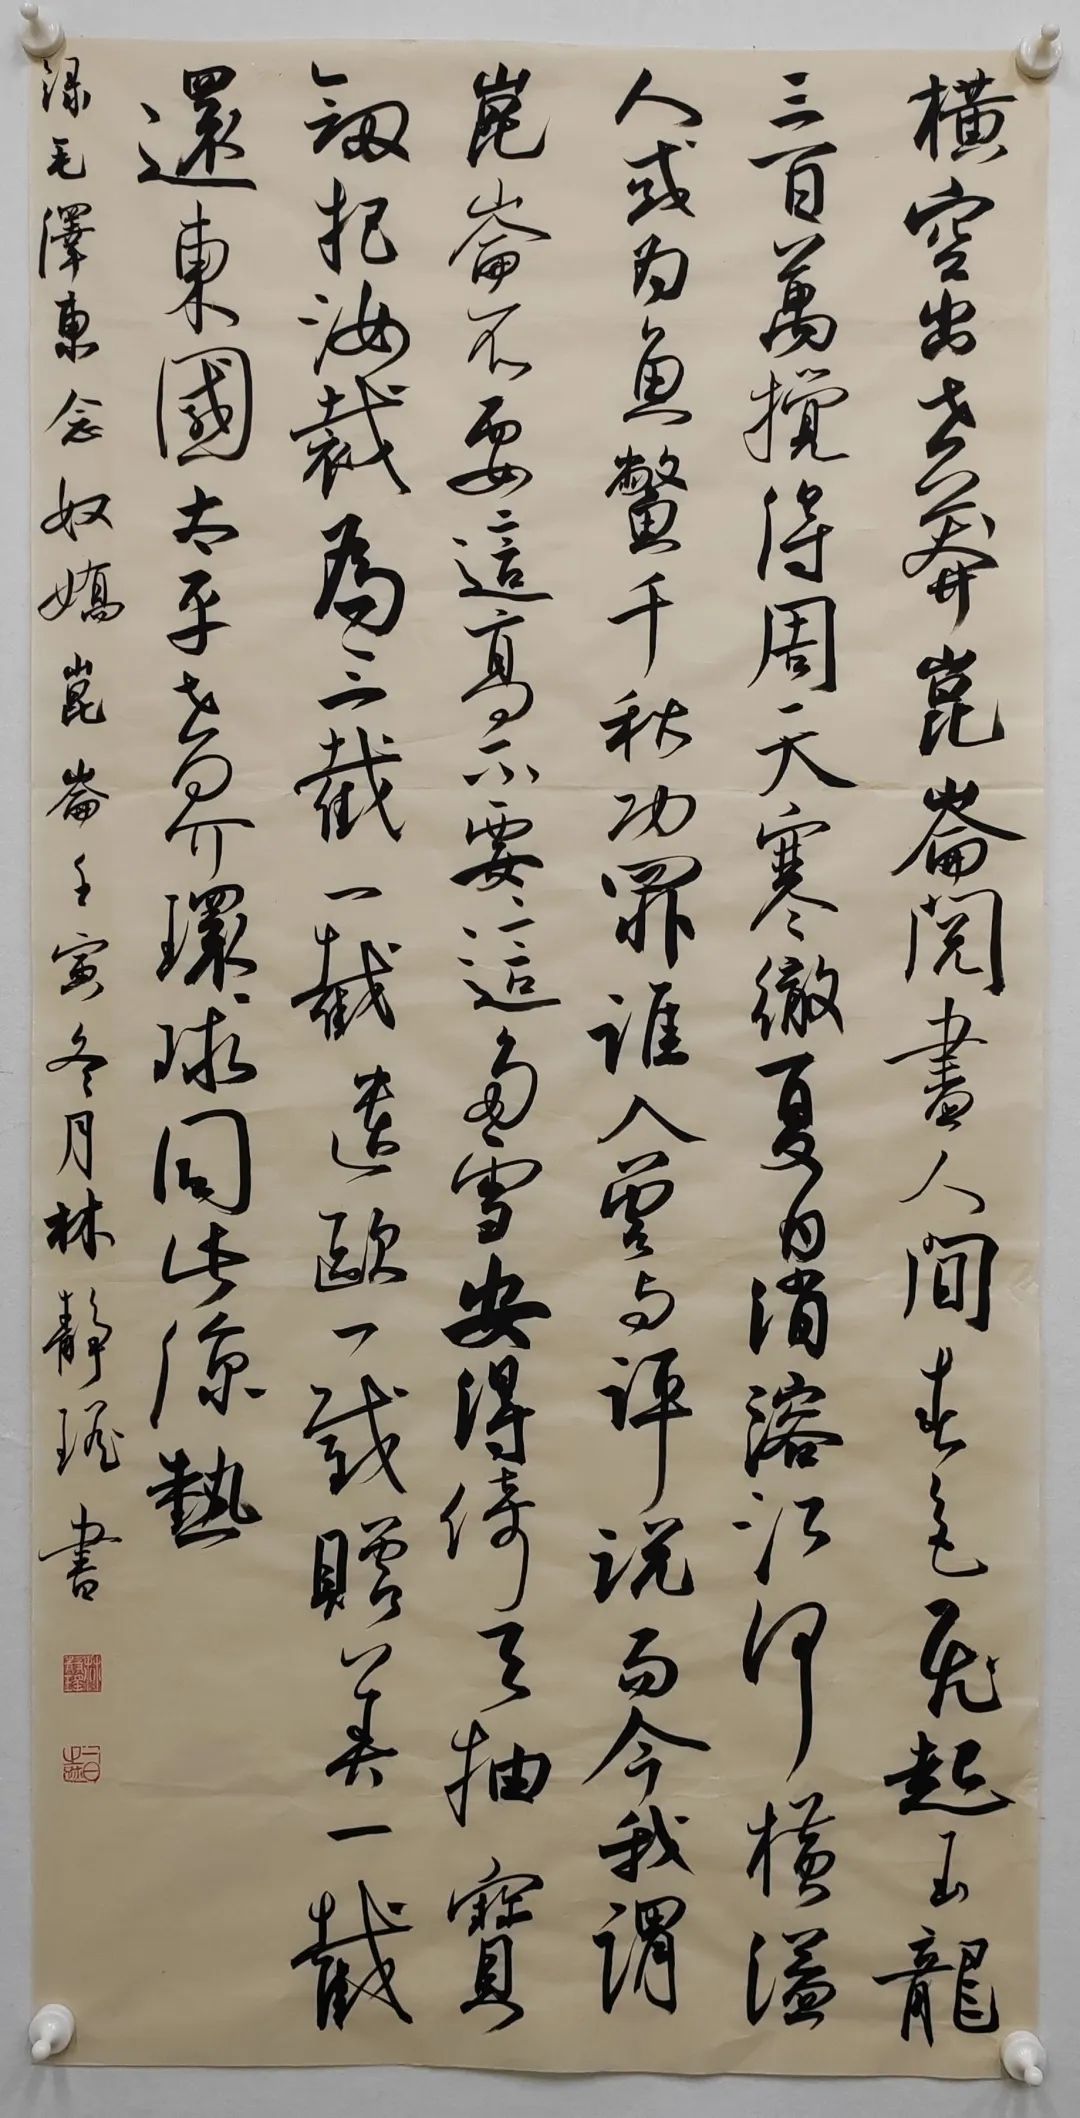 橫空出世莽崑崙閱盡人間春色飛起玉龍
三百萬攪得周天寒徹夏日消溶江河橫溢
人或為魚鱉千秋功罪誰人曾與評說而今我謂
崑崙不要這高不要這多雪安得倚天抽寶
劍把汝裁為三截一截遺歐一截贈美一截
還東國太平世界環球同此涼熱
錄毛澤東念奴嬌崑崙壬寅冬月林靜瑤書